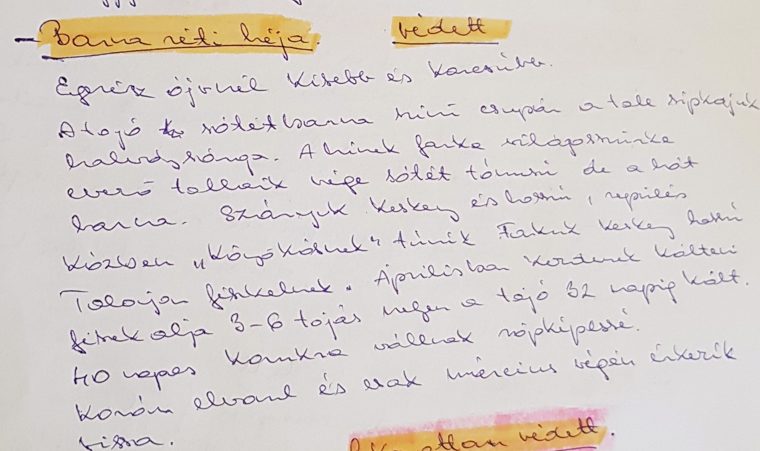 - Barna réti héja. védett
Egerész ölyvnél kisebb és karcsúbb.
A tojó sötétbarna színű csupán a fale sipkájuk
halvány sárga. A hímek farka világosszürke
evező tollaik vége sötét tónusú de a hát
barna. Szárnyuk keskeny és hosszú, repülés
közben „könyökösnek" tűnik Farkuk keskeny hosszú
Talajon fészkelnek. Áprilisban kezdenek költeni
fészekalja 3-6 tojás melyen a tojó 32 napig költ.
40 napos korukra válnak röpképessé.
Korán elvonul és csak március végén érkezik
vissza.
Fokozottan védett.